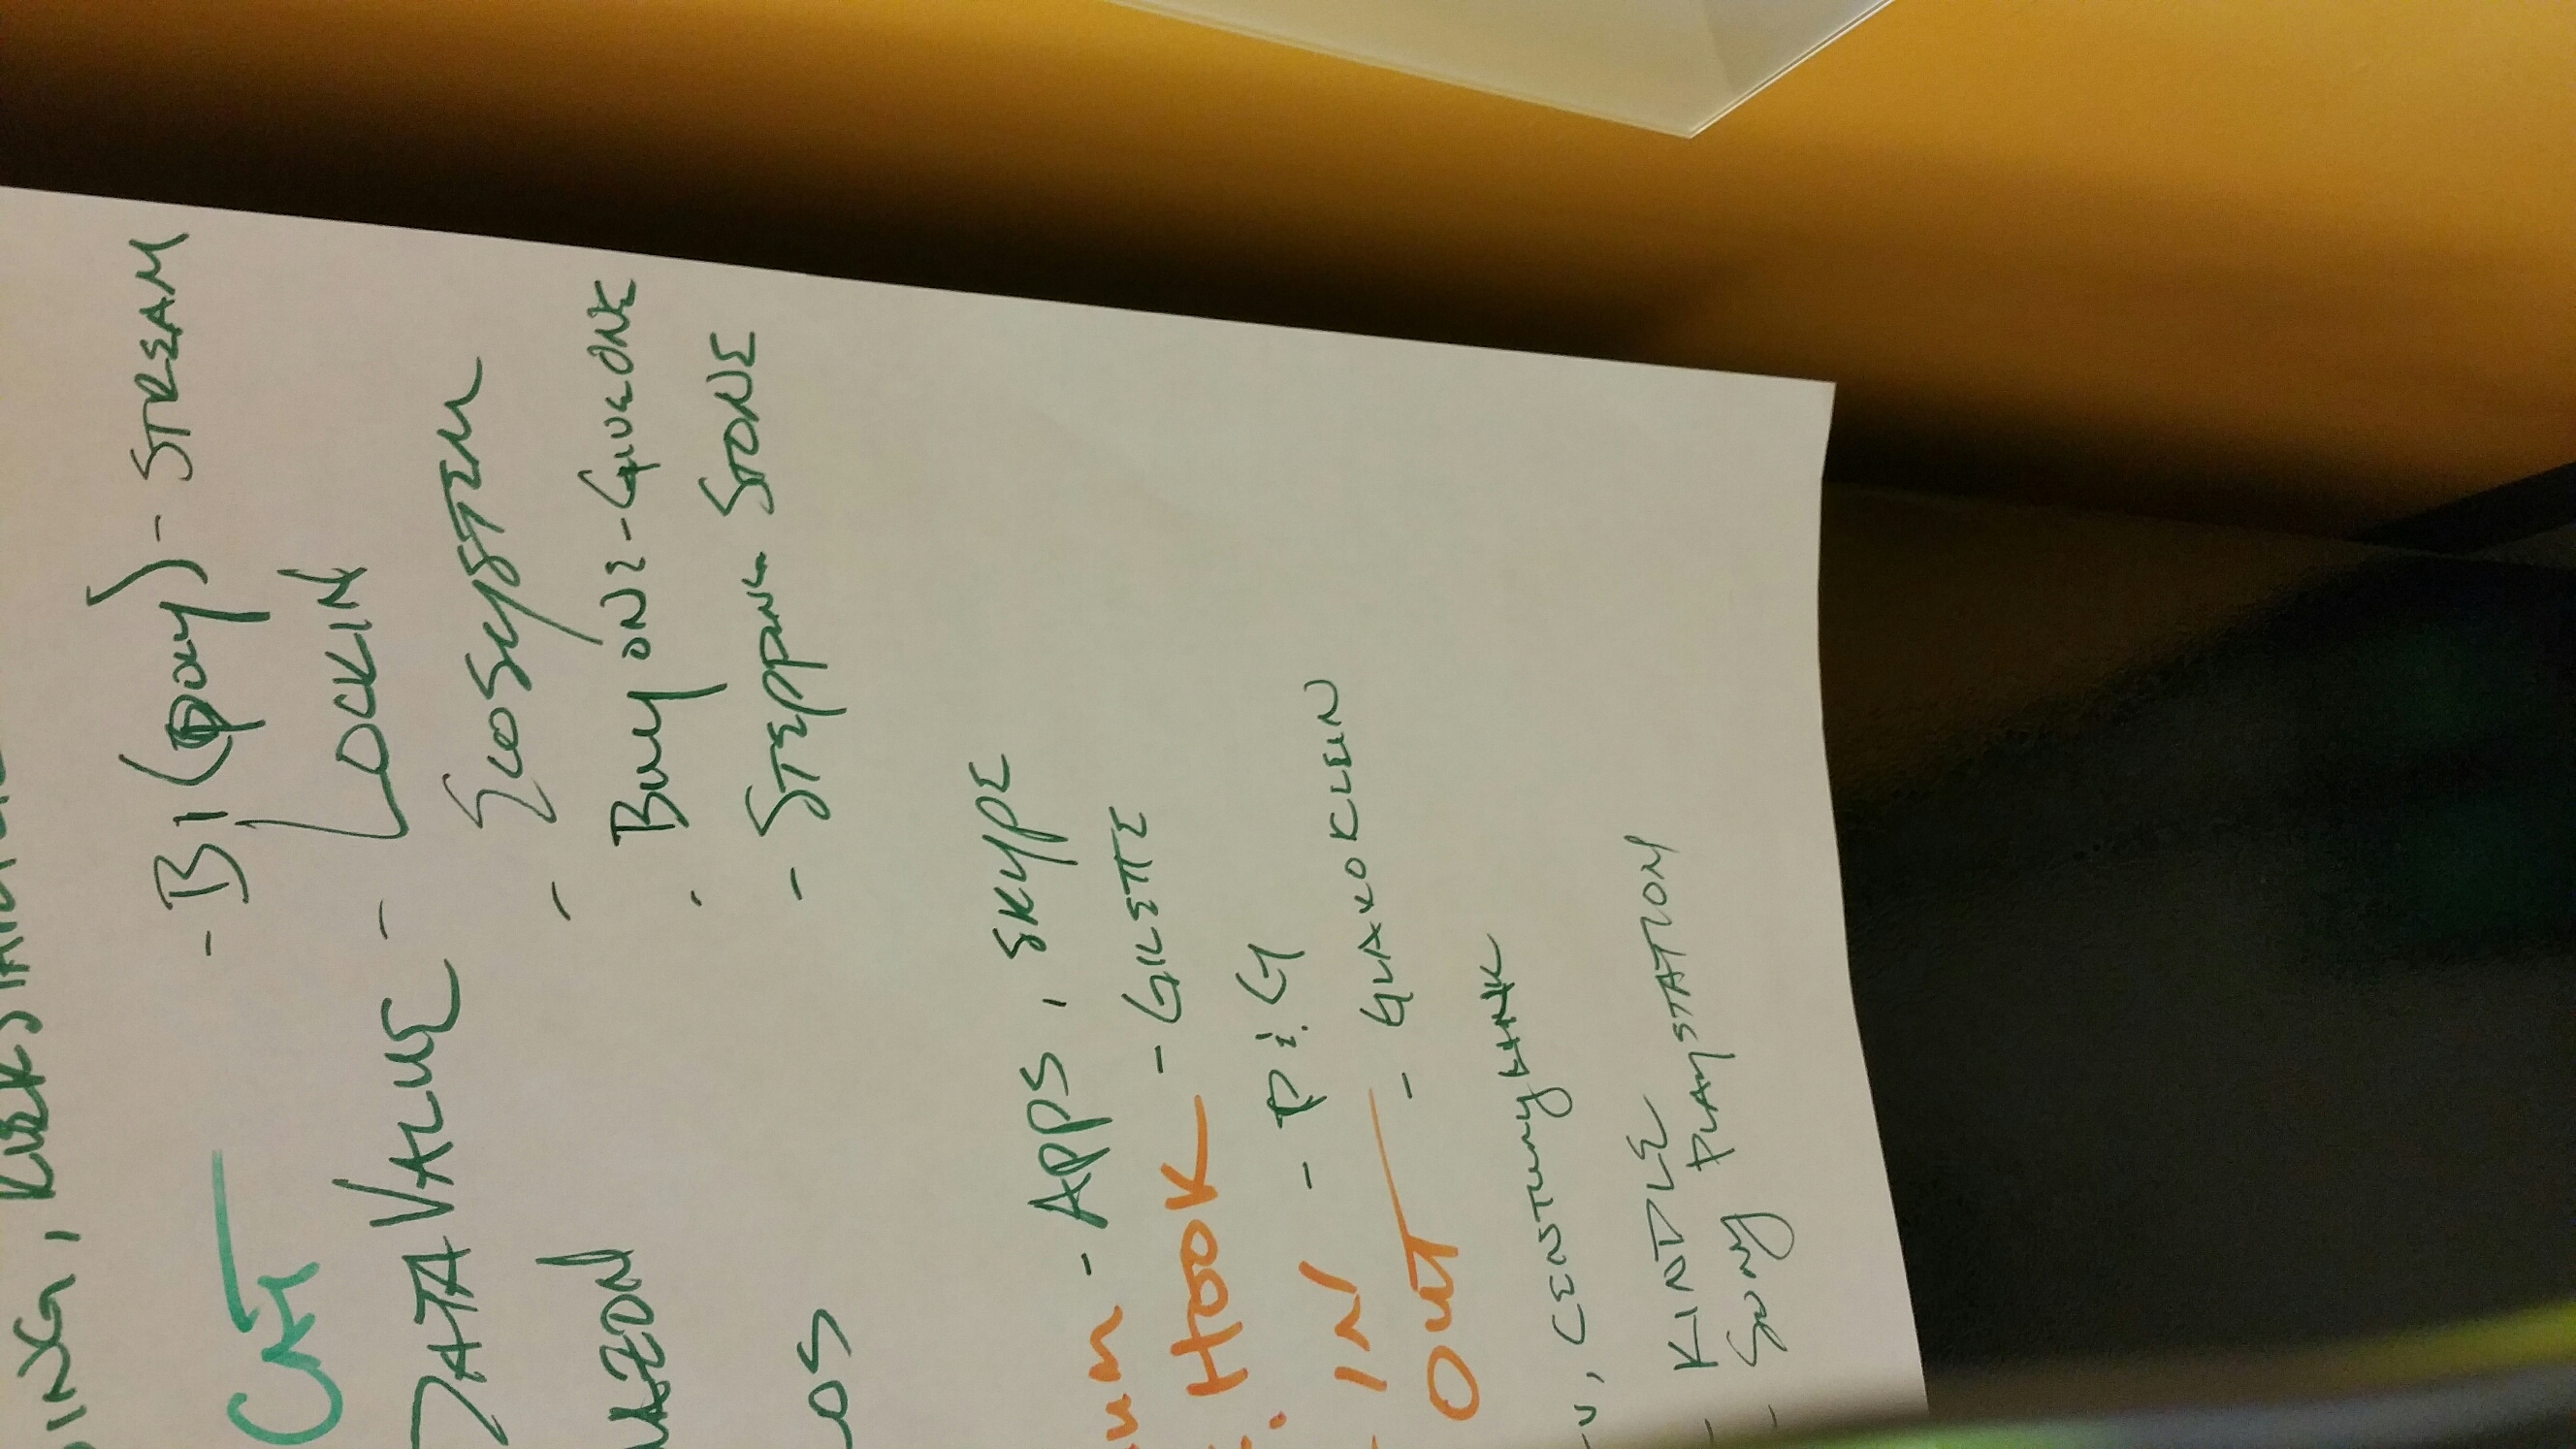 - BI (BODY) - STREAM
DATA VALUE - LOCKIN
- ECOSYSTEM
- BUY ONE - GIVE ONE
- STEPPING STONE
- APPS, SKYPE
HOOK - GILETTE
IN - P & G
OUT - GLAXOKLEIN
, CENTURYLINK
- KINDLE
- SONY PLAYSTATION